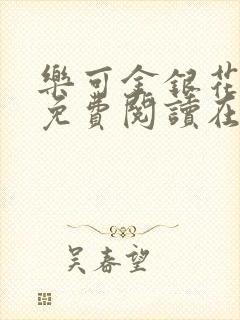 樂可金銀花
免費閱讀在
吴春望